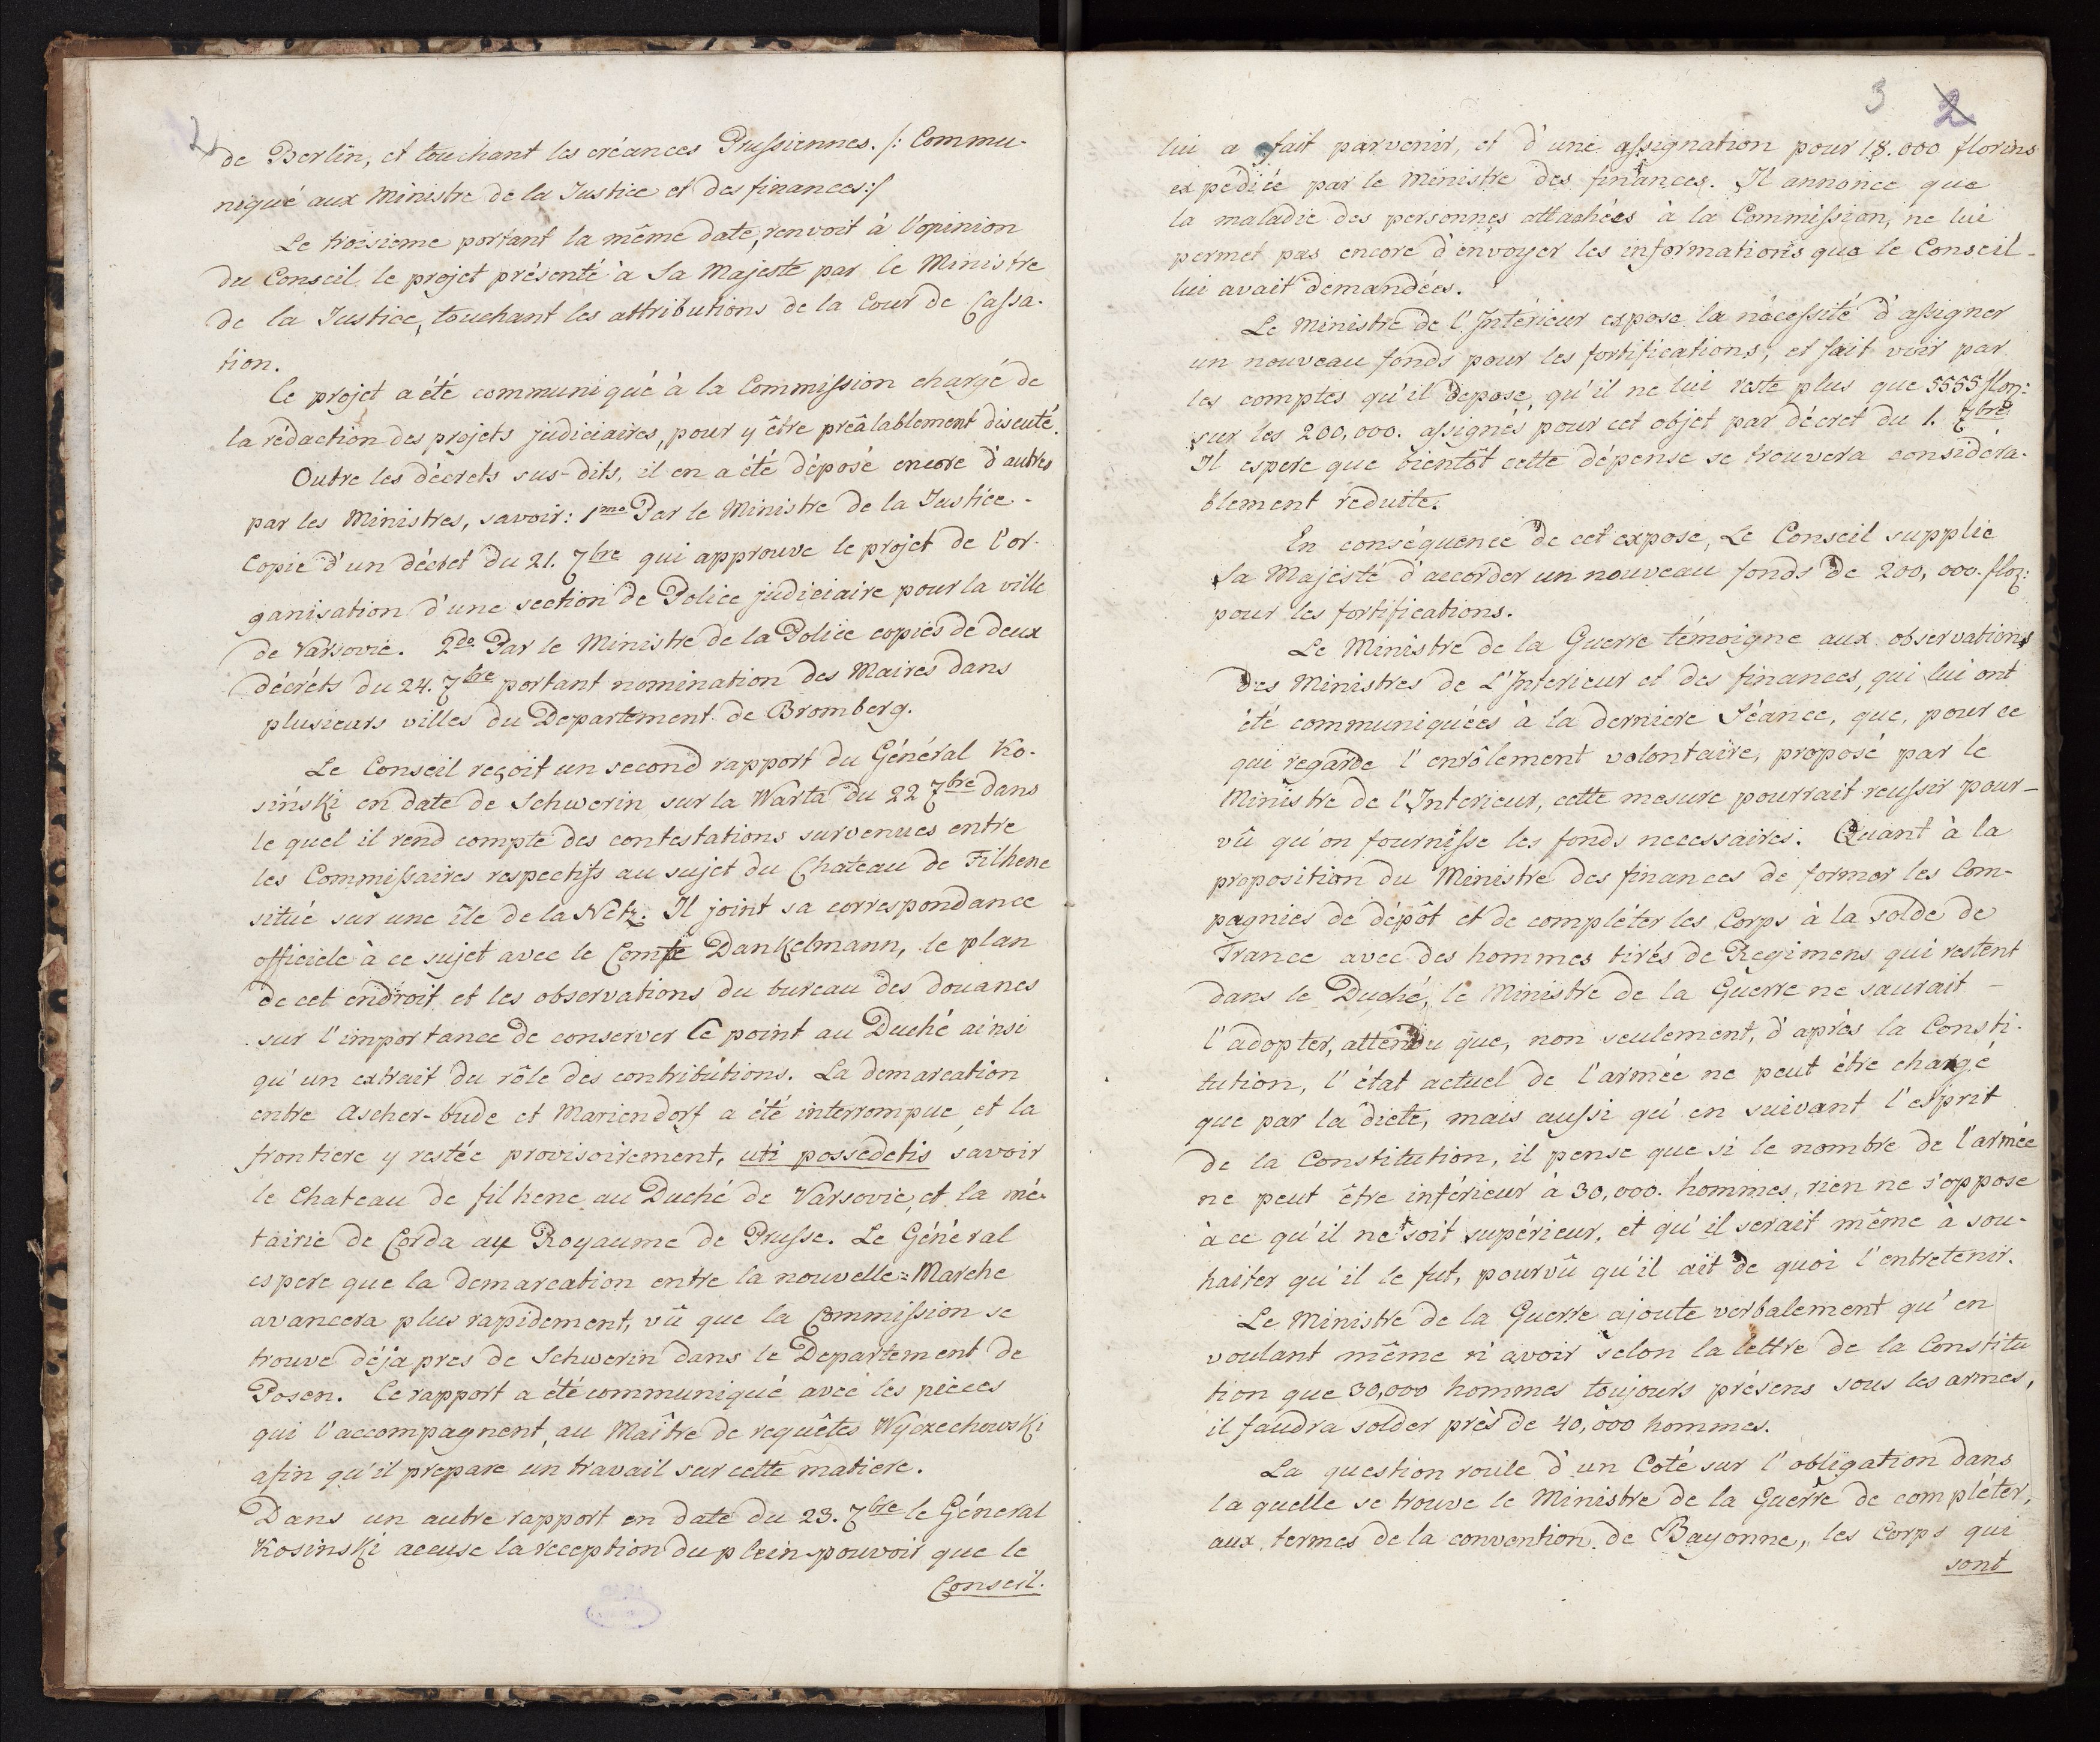 2
de Berlin, et touchant les créances Prussiennes. /: Commu-
niqué aux Ministre de la Justice et des finances:/
Le troisieme portant la même date, renvoit à l'opinion
du Conseil le projet présenté à Sa Majeste par le Ministre
de la Justice, touchant les attributions de la Cour de Cassa-
tion.
Ce projet a été communiqué à la Commission chargé de
la rédaction des projets judiciaires, pour y être préalablement discuté.
Outre les décrets sus-dits, il en a été déposé encore d'autres
par les Ministres, savoir: 1mo Par le Ministre de la Justice -
Copie d'un décret du 21. 7bre qui approuve le projet de l'or-
ganisation d'une section de Police judiciaire pour la ville
de Varsovie. 2do Par le Ministre de la Police copies de deux
décréts du 24. 7bre portant nomination des Maires dans
plusieurs villes du Departement de Bromberg.
Le Conseil reçoit un second rapport du Général Ko-
siński en date de Schwerin sur la Warta du 22 7bre dans
le quel il rend compte des contestations survenues entre
les Commissaires respectifs au sujet du Chateau de Filhene
situé sur une île de la Netz. Il joint sa correspondance
officiele à ce sujet avec le Comte Dankelmann, le plan
de cet endroit et les observations du bureau des douanes
sur l'importance de conserver ce point au Duché ainsi
qu'un extrait du rôle des contributions. La demarcation
entre Ascher-bude et Mariendorf a été interrompue, et la
frontiere y restée provisoirement, uti possedetis savoir
le Chateau de filhene au Duché de Varsovie, et la mé-
tairie de Corda au Royaume de Prusse. Le Général
espere que la demarcation entre la nouvelle=Marche
avancera plus rapidement, vû que la Commission se
trouve déja pres de Schwerin dans le Departement de
Posen. Ce rapport a été communiqué avec les pièces
qui l'accompagnent, au Maître de requêtes Wyczechowski
afin qu'il prepare un travail sur cette matiere.
Dans un autre rapport en date du 23. 7bre le Géneral
Kosinski accuse la reception du plein-pouvoir que le
Conseil.
3 2
lui a fait parvenir, et d'une assignation pour 18.000 florins
expediée par le Ministre des finances. Il annonce que
la maladie des personnes attachées à la Commission, ne lui
permet pas encore d'envoyer les informations que le Conseil -
lui avait demandées.
Le Ministre de l'Intérieur expose la nécessité d'assigner
un nouveau fonds pour les fortifications, et fait voir par
les comptes qu'il depose, qu'il ne lui reste plus que 5555 flor:
sur les 200,000. assignés pour cet objet par décret du 1. 7bre
Il espere que bientôt cette dépense se trouvera considéra-
blement reduite.
En conséquence de cet expose, Le Conseil supplie
Sa Majesté d'accorder un nouveau fonds de 200,000. flor:
pour les fortifications.
Le Ministre de la Guerre témoigne aux observations
des Ministres de L'Interieur et des finances, qui lui ont
été communiquées à la derniere Séance, que, pour ce
qui regarde l'enrôlement volontaire, proposé par le
Ministre de l'Interieur, cette mesure pourrait reussir pour-
vû qu'on fournisse les fonds necessaires. Quant à la
proposition du Ministre des finances de former les Com-
pagnies de dépôt et de compléter les Corps à la solde de
France avec des hommes tirés de Regimens qui restent
dans le Duché, le Ministre de la Guerre ne saurait -
l'adopter, attendu que, non seulement, d'après la Consti-
tution, l'état actuel de l'armée ne peut être changé
que par la diete, mais aussi qu'en suivant l'esprit
de la Constitution, il pense que si le nombre de l'armée
ne peut être inférieur à 30,000. hommes, rien ne s'oppose
à ce qu'il ne soit supérieur, et qu'il serait même à sou-
haiter qu'il le fut, pourvû qu'il ait de quoi l'entretenir.
Le Ministre de la Guerre ajoute verbalement qu'en
voulant même n'avoir selon la lettre de la Constitu
tion que 30,000 hommes toujours présens sous les armes,
il faudra solder près de 40,000 hommes.
La question roule d'un Coté sur l'obligation dans
la quelle se trouve le Ministre de la Guerre de compléter,
aux termes de la convention de Bayonne, les Corps qui
sont